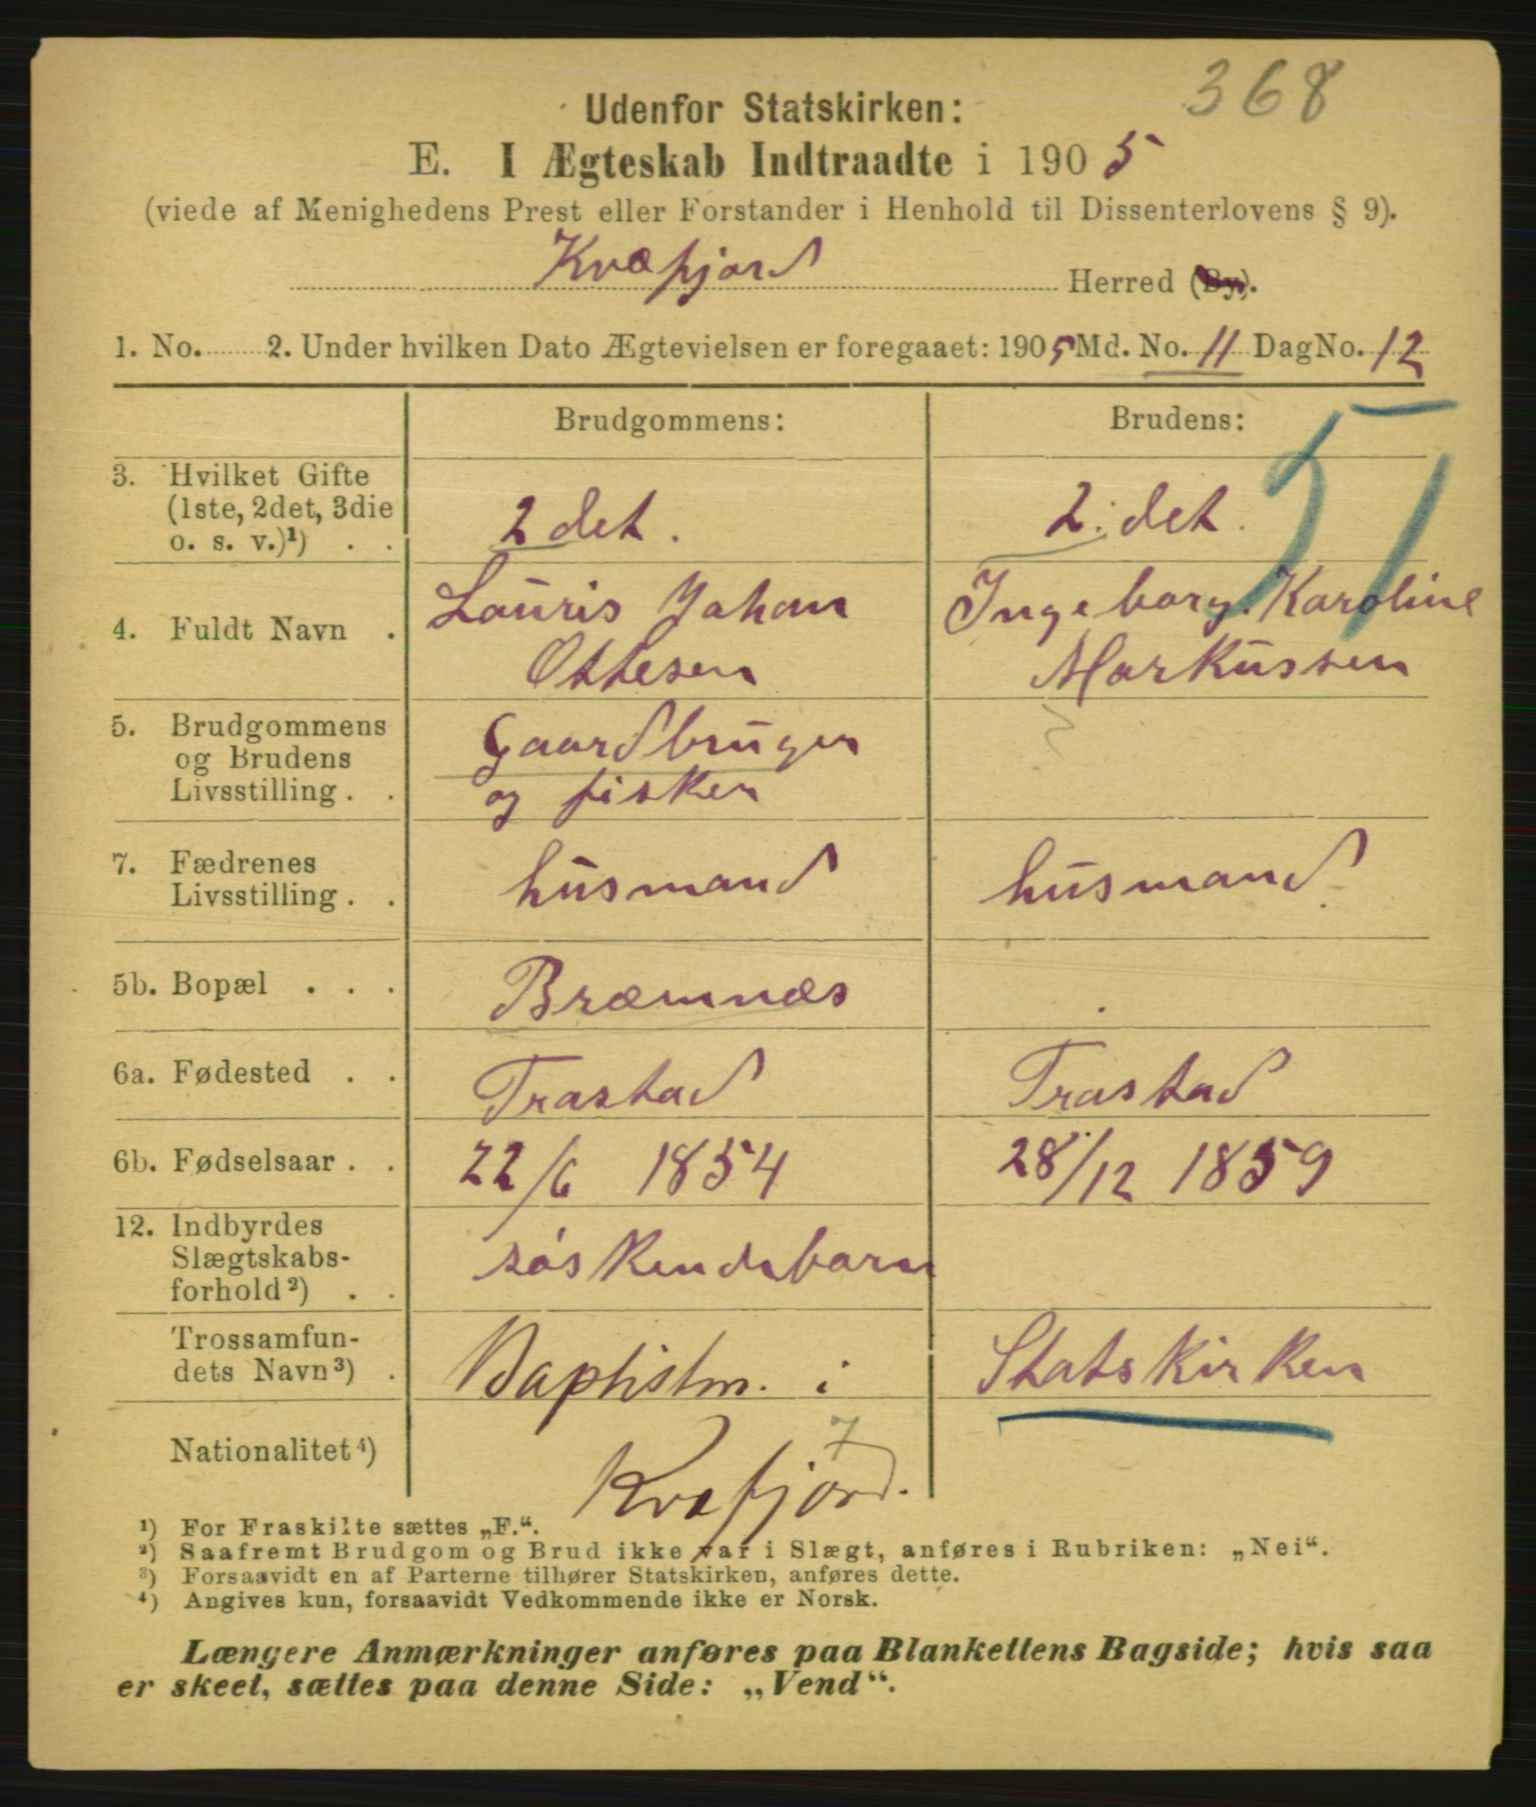 368
Udenfor Statskirken:
E. I Ægteskab Indtraadte i 1905
(viede af Menighedens Prest eller Forstander i Henhold til Dissenterlovens § 9).
Kvæfjord Herred (By).
1. No. 2. Under hvilken Dato Ægtevielsen er foregaaet: 1905 Md. No. 11 Dag No. 12
Brudgommens: Brudens:
51
3. Hvilket Gifte
(1ste, 2det, 3die
o. s. v.)¹) . .
2 det. 2. det.
4. Fuldt Navn .
Lauris Johan
Ottesen
Ingeborg Karoline
Markussen
5. Brudgommens
og Brudens
Livsstilling . .
Gaardbruger
og fisker
7. Fædrenes
Livsstilling . .
husmand husmand
5b. Bopæl . . . Bræmnæs
6a. Fødested . . Trastad Trastad
6b. Fødselsaar . . 22/6 1854 28/12 1859
12. Indbyrdes
Slægtskabs-
forhold ²) . .
søskendebarn
Trossamfun-
dets Navn ³) .
Baptistm. i
Kvæfjord.
Statskirken
Nationalitet ⁴)
7
¹) For Fraskilte sættes „F.“.
²) Saafremt Brudgom og Brud ikke var i Slægt, anføres i Rubriken: „Nei“.
³) Forsaavidt en af Parterne tilhører Statskirken, anføres dette.
⁴) Angives kun, forsaavidt Vedkommende ikke er Norsk.
Længere Anmærkninger anføres paa Blankettens Bagside; hvis saa
er skeet, sættes paa denne Side: „Vend“.